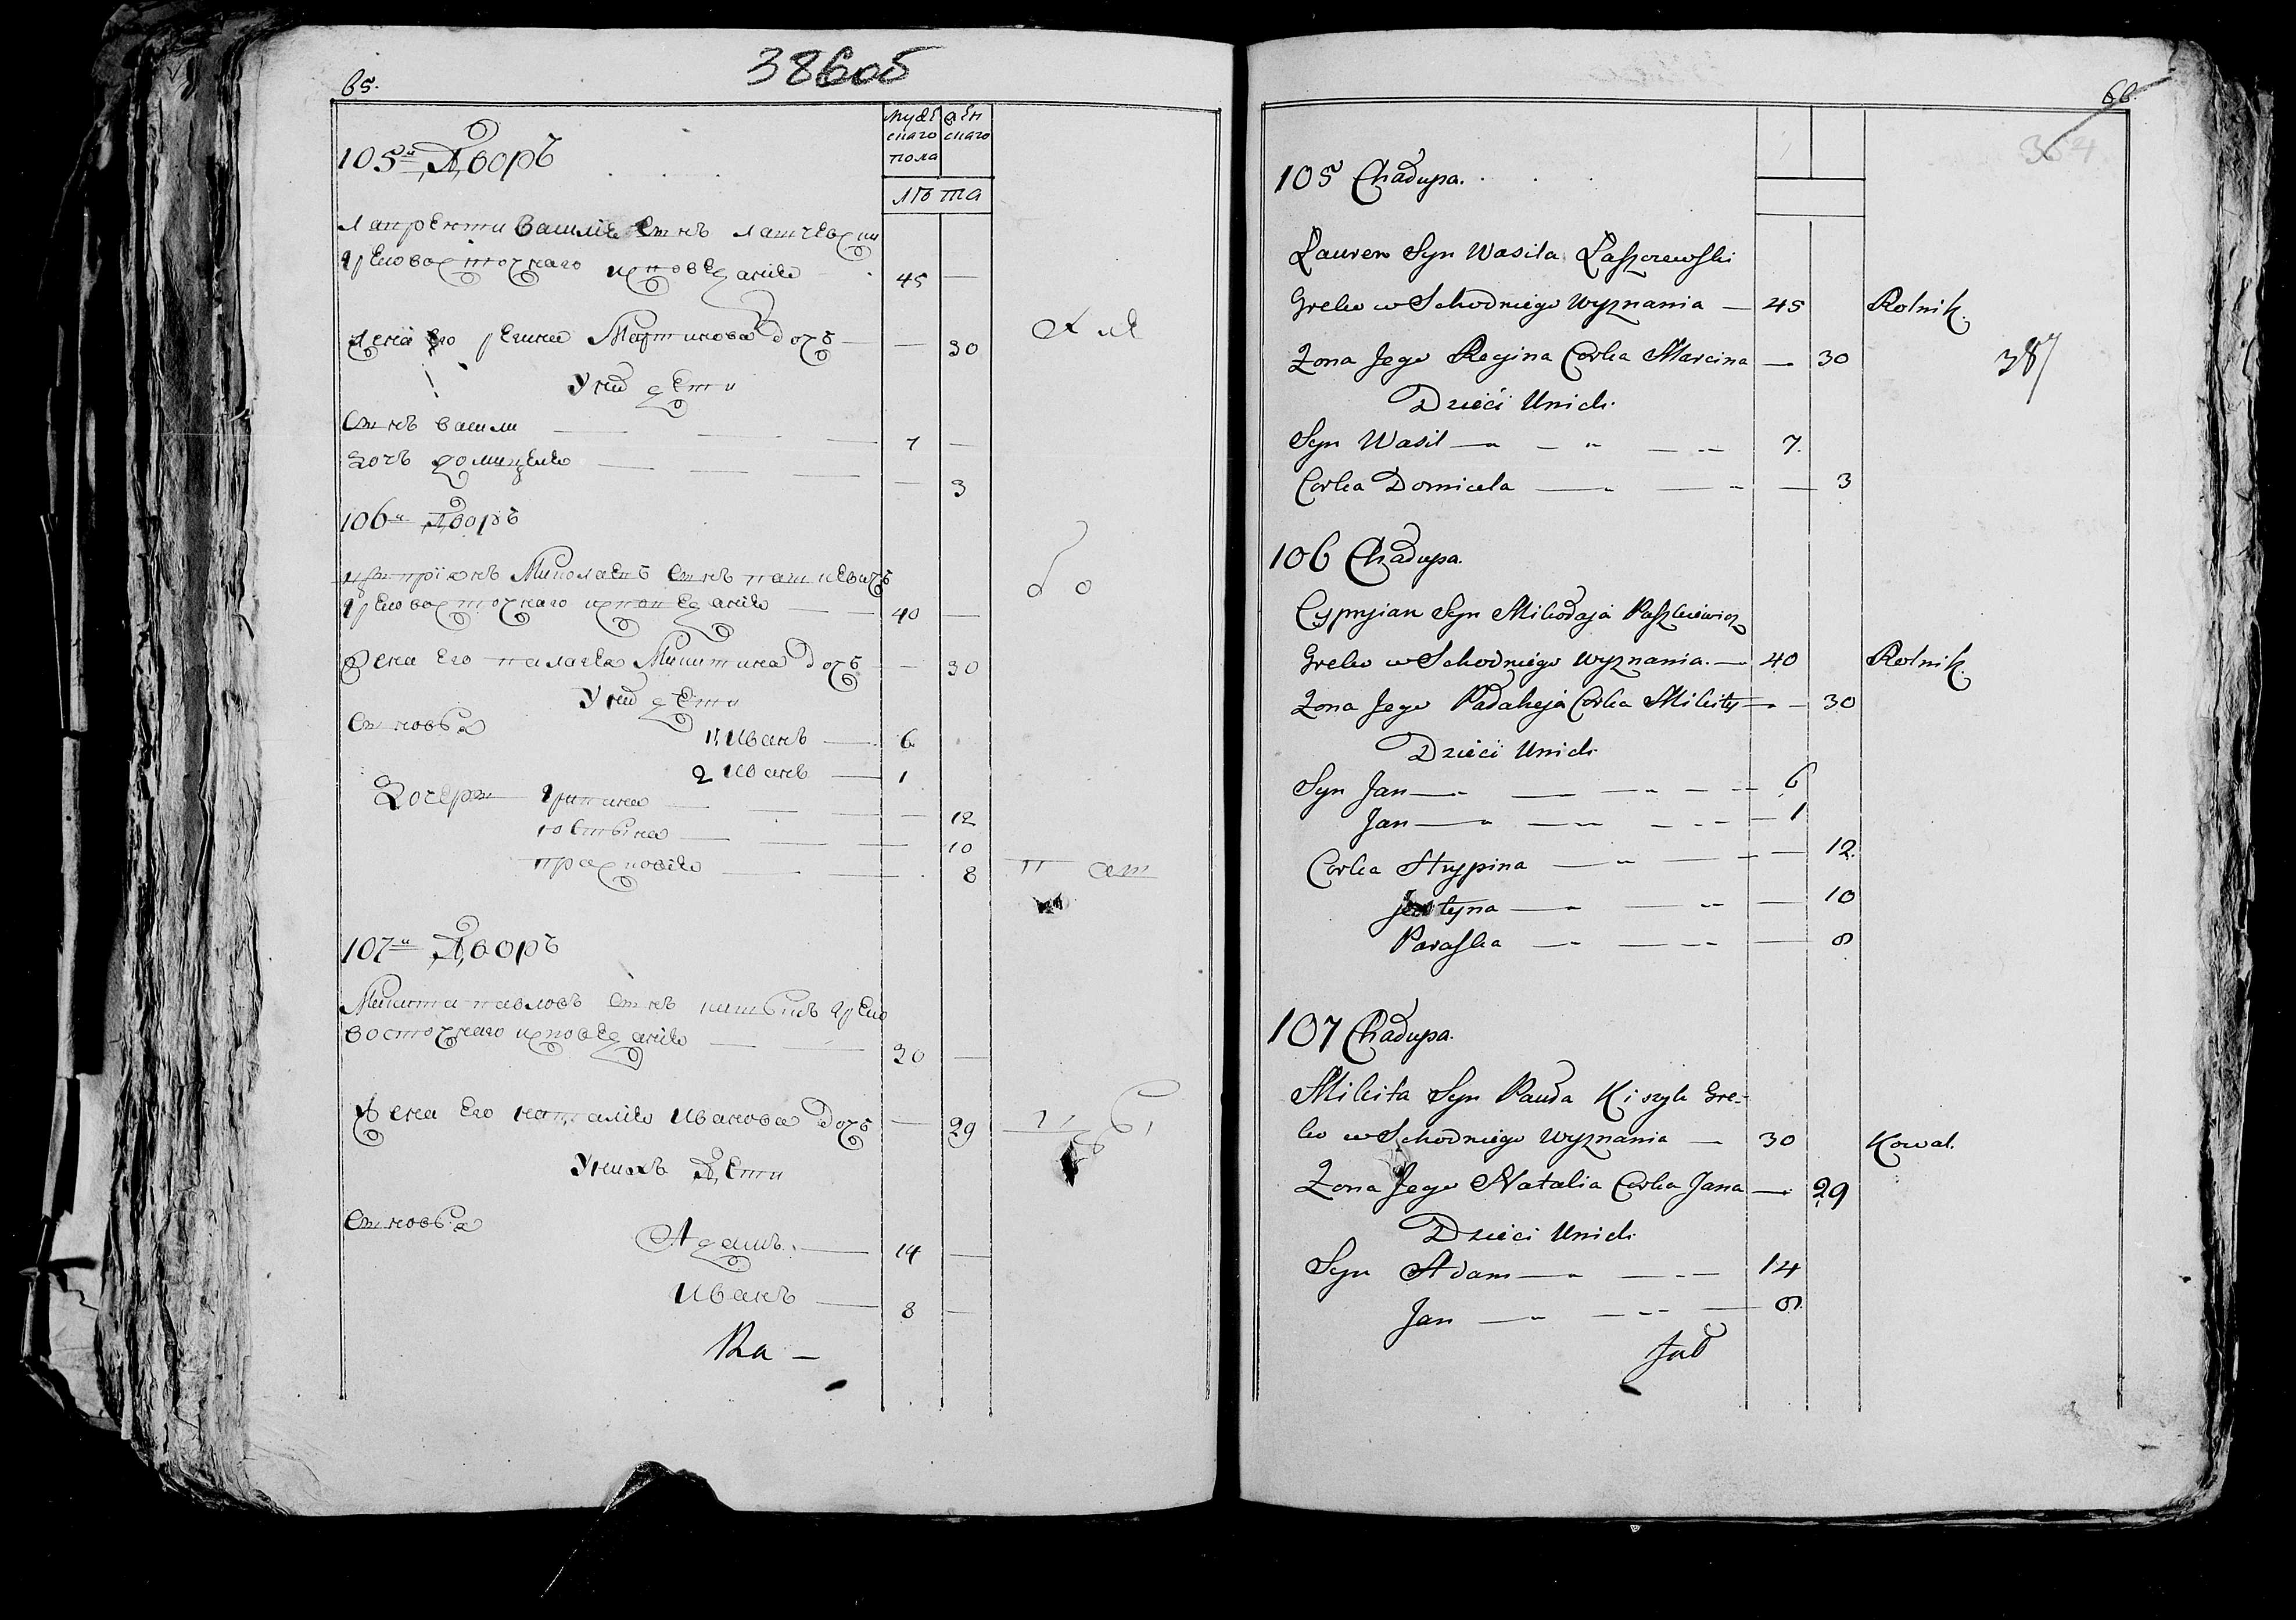 65.
386об
мужескаго пола
женскаго
лѣта
105й Дворъ
Лаврентий Василiевъ сынъ Лашчевский
грековосточнаго исповеданiя — 45 —
Жена его Регина Мартинова дочъ — — 30
У них дети
Сынъ Васили — 7 —
Дочъ Домицеля — — 3
106й Дворъ
Циприянъ Миколаевъ сынъ Пашкевичъ
грековосточнаго исповеданiя — 40 —
Жена его Палагея Микитина дочъ — — 30
У них дети
Сыновья 1, Иванъ — 6
2 Иванъ — 1
Дочеры Грипина — — 12
Юстына — — 10
Прасковiя — 8
107й Дворъ
Микита Павловъ сынъ Кишыкъ греко
восточнаго исповеданiя — 30 —
Жена его Наталiя Иванова дочъ — 29
У нихъ Дети
Сыновья Адамъ — 14 —
Иванъ — 8 —
66.
364
105 Chałupa.
Lauren Syn Wasila Laszczewski
Greko wSchodniego Wyznania — 45 Rolnik.
Zona Jego Regina Corka Marcina — 30
387
Dzieci Unich
Syn Wasil — 7.
Corka Domicela — 3
106 Chałupa.
Cypryian Syn Mikołaja Paszkiewicz
Greko wSchodniego Wyznania. — 40 Rolnik.
Zona Jego Pałaheja Corka Mikity — 30
Dzieci Unich
Syn Jan — 6
Jan — 1
Corka Hrypina — 12.
Justyna — 10
Paraska — 8
107 Chałupa.
Mikita Syn Pauła Kiszyk Gre-
ko wSchodniego Wyznania — 30 Kowal.
Zona Jego Natalia Corka Jana — 29
Dzieci Unich
Syn Adam — 14
Jan — 8